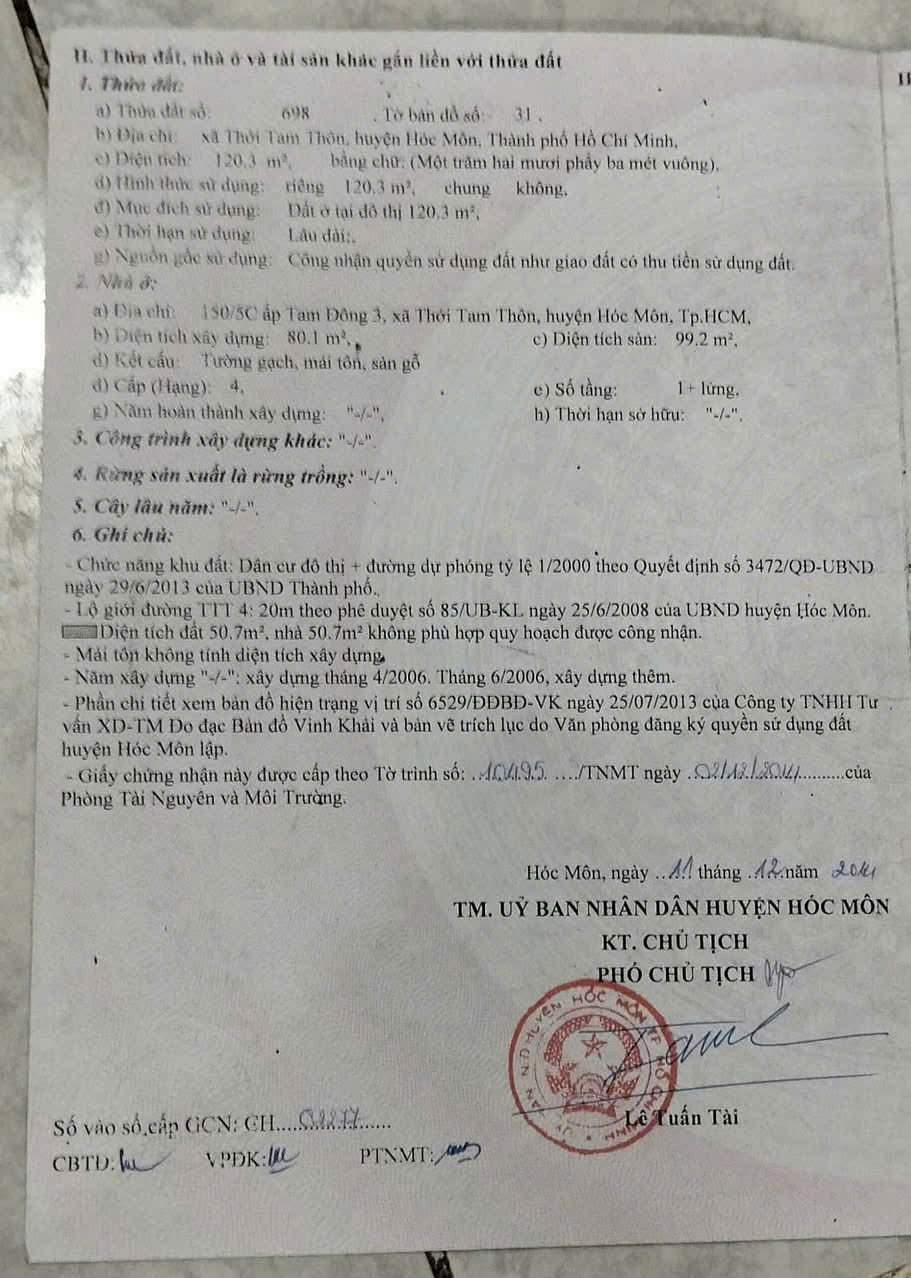 II. Thửa đất, nhà ở và tài sản khác gắn liền với thửa đất
1. Thửa đất:
a) Thửa đất số: 698 . Tờ bản đồ số: 31 .
b) Địa chỉ: xã Thới Tam Thôn, huyện Hóc Môn, Thành phố Hồ Chí Minh,
c) Diện tích: 120.3 m², bằng chữ: (Một trăm hai mươi phẩy ba mét vuông),
d) Hình thức sử dụng: riêng 120.3 m², chung không,
đ) Mục đích sử dụng: Đất ở tại đô thị 120.3 m²,
e) Thời hạn sử dụng: Lâu dài;.
g) Nguồn gốc sử dụng: Công nhận quyền sử dụng đất như giao đất có thu tiền sử dụng đất.
2. Nhà ở:
a) Địa chỉ: 150/5C ấp Tam Đông 3, xã Thới Tam Thôn, huyện Hóc Môn, Tp.HCM,
b) Diện tích xây dựng: 80.1 m², c) Diện tích sàn: 99.2 m²,
d) Kết cấu: Tường gạch, mái tôn, sàn gỗ
đ) Cấp (Hạng): 4, e) Số tầng: 1+ lửng,
g) Năm hoàn thành xây dựng: "-/-", h) Thời hạn sở hữu: "-/-".
3. Công trình xây dựng khác: "-/-".
4. Rừng sản xuất là rừng trồng: "-/-".
5. Cây lâu năm: "-/-".
6. Ghi chú:
- Chức năng khu đất: Dân cư đô thị + đường dự phóng tỷ lệ 1/2000 theo Quyết định số 3472/QĐ-UBND
ngày 29/6/2013 của UBND Thành phố.
- Lộ giới đường TTT 4: 20m theo phê duyệt số 85/UB-KL ngày 25/6/2008 của UBND huyện Hóc Môn.
Diện tích đất 50.7m², nhà 50.7m² không phù hợp quy hoạch được công nhận.
- Mái tôn không tính diện tích xây dựng.
- Năm xây dựng "-/-": xây dựng tháng 4/2006. Tháng 6/2006, xây dựng thêm.
- Phần chi tiết xem bản đồ hiện trạng vị trí số 6529/ĐĐBĐ-VK ngày 25/07/2013 của Công ty TNHH Tư
vấn XD-TM Đo đạc Bản đồ Vinh Khải và bản vẽ trích lục do Văn phòng đăng ký quyền sử dụng đất
huyện Hóc Môn lập.
- Giấy chứng nhận này được cấp theo Tờ trình số: ..10495. ..../TNMT ngày .02/12/2014..........của
Phòng Tài Nguyên và Môi Trường.
Hóc Môn, ngày ..11 tháng .12.năm 2014
TM. UỶ BAN NHÂN DÂN HUYỆN HÓC MÔN
KT. CHỦ TỊCH
PHÓ CHỦ TỊCH
Lê Tuấn Tài
Số vào sổ cấp GCN: CH....02277......
CBTD: VPĐK: PTNMT: